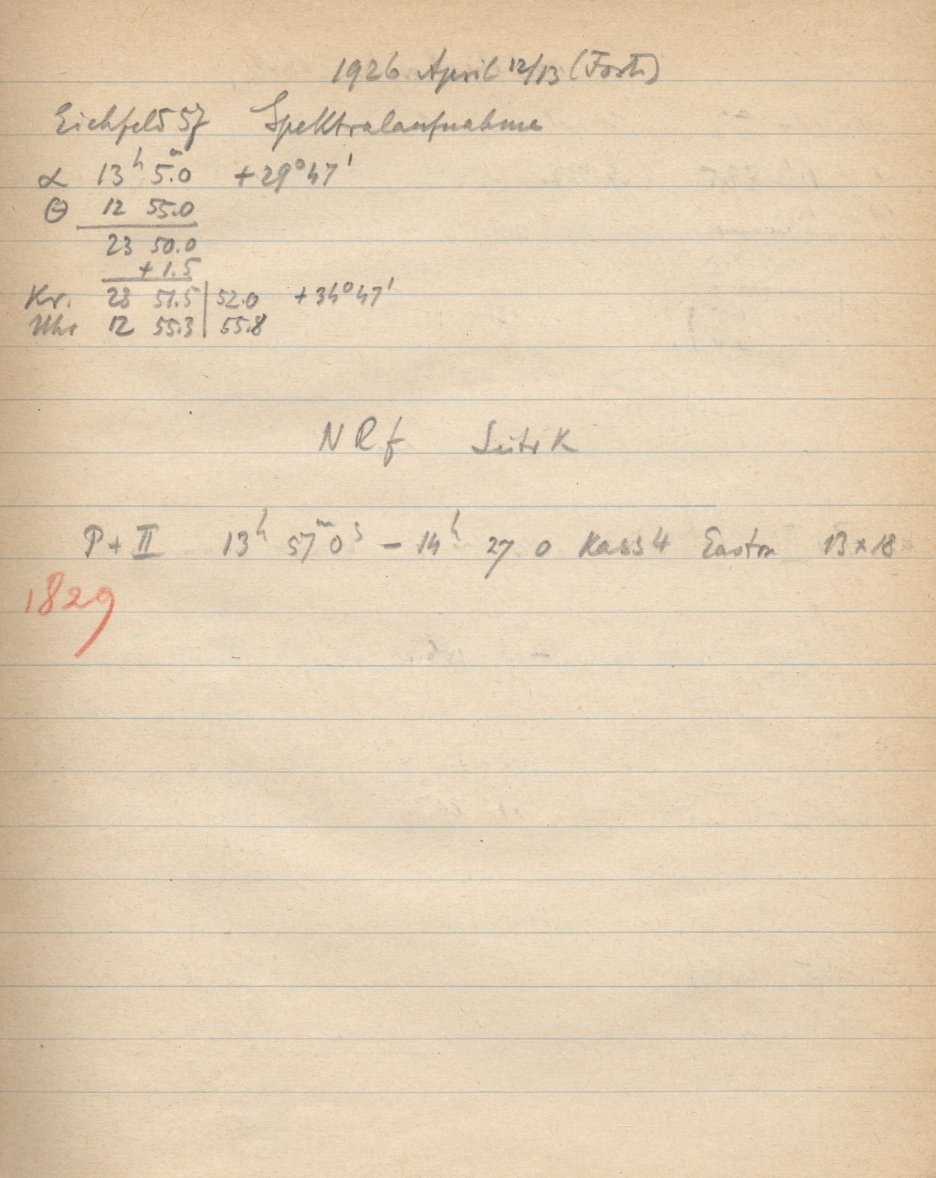 1926 April 12/13 (Forts)
Eichfeld 57 Spektralaufnahme
α 13ʰ 5ᵐ.0 +29°47'
Θ 12 55.0
23 50.0
+1.5
Kr. 23 51.5 | 52.0 +34°47'
Uhr 12 55.3 | 55.8
NRf
P+II 13ʰ 57ᵐ 0ˢ – 14ʰ 27 0 Kass 4 13×18
1829